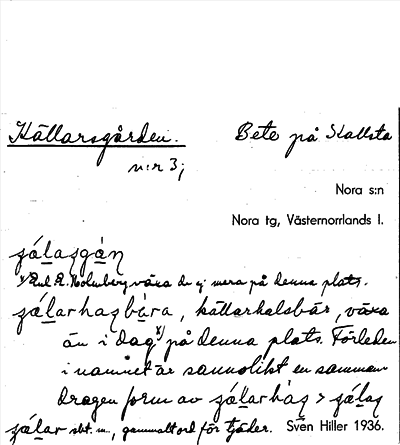 Källarsgården. Bete på Kallsta
n:r 3;
Nora s:n
Nora tg, Västernorrlands l.
x) Enl E. Holmberg växa de ej mera på denna plats.
källarhalsbär, växa
än i dag x) på denna plats. Förleden
i namnet är sannolikt en samman
dragen form av
sbt. m., gammalt ord för tjäder. Sven Hiller 1936.